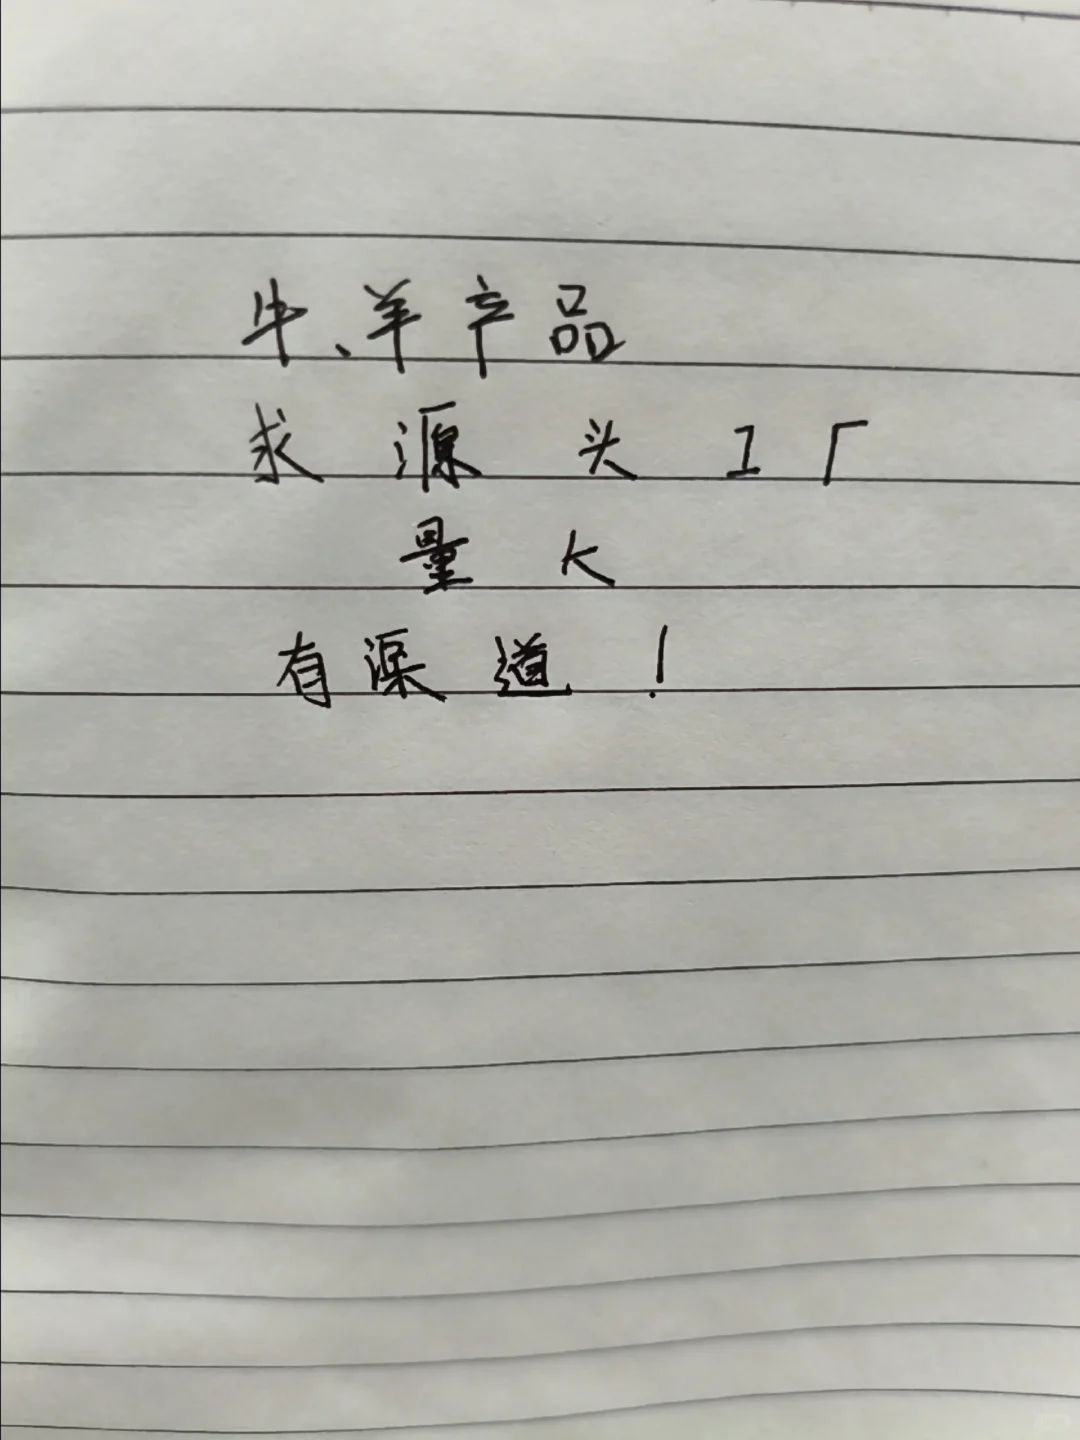 牛、羊产品
求源头工厂
量大
有渠道！